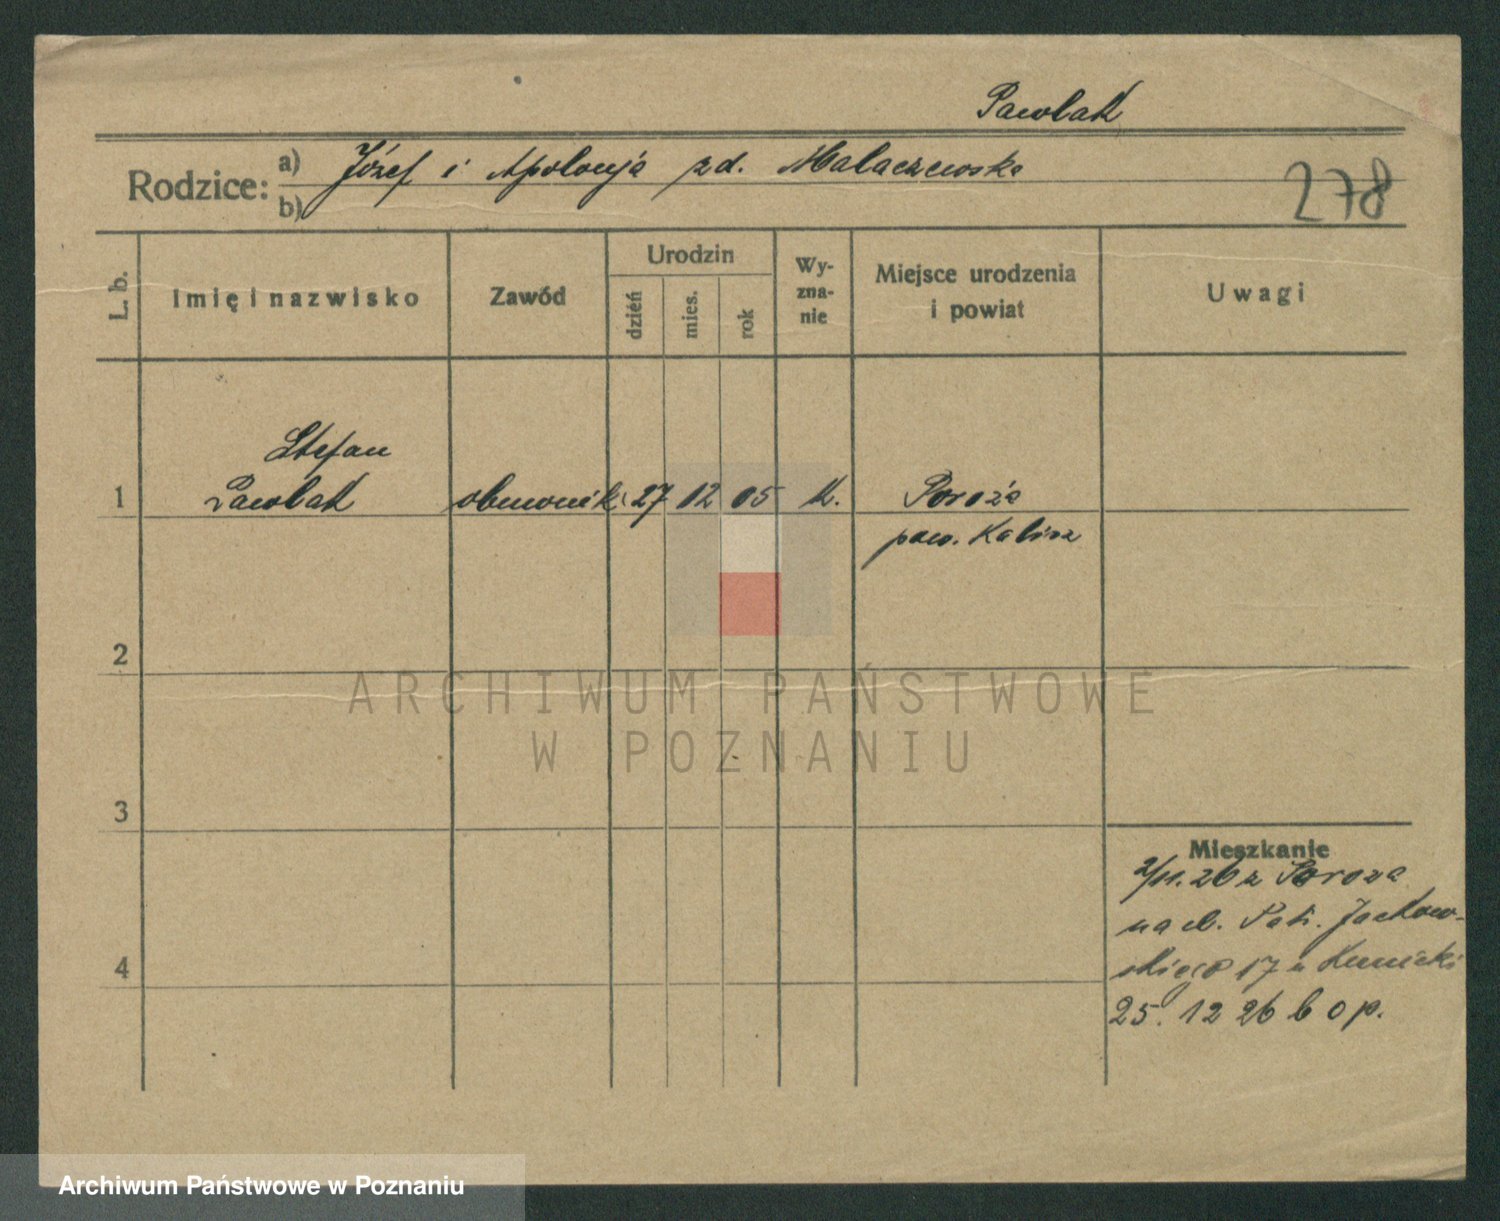 Pawlak
Rodzice:
a) Józef i Apolonja zd. Małaczewska
b)
278
L. b.
Imię i nazwisko
Zawód
Urodzin
dzień
mies.
rok
Wy-
zna-
nie
Miejsce urodzenia
i powiat
Uwagi
Stefan
1 Pawlak 27 12 05 K. Poroża
pow. Kalisz
2
ARCHIWUM PAŃSTWOWE
W POZNANIU
3
Mieszkanie
2/11. 26 z Poroża
na ul. Patr. Jackow-
skiego 17 u
25. 12 26 b o p.
4
Archiwum Państwowe w Poznaniu